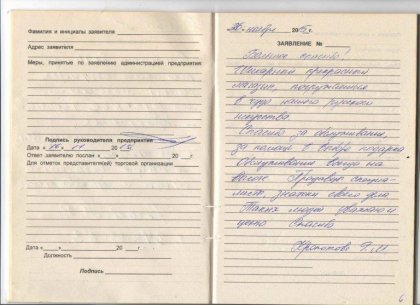 Фамилия и инициалы заявителя
Адрес заявителя
Меры, принятые по заявлению администрацией предприятия
Подпись руководителя предприятия
Дата « 26 » 11 20 15
Ответ заявителю послан « » 20 г.
Для отметок представителя(ей) торговой организации
Дата « » 20 г.
Должность
Подпись
26 ноября 2015 г.
ЗАЯВЛЕНИЕ №
Большое спасибо!
Шикарный прекрасный
магазин, погружаешься
в чудо нашего русского
искусства.
Спасибо за обслуживание,
за помощь в выборе подарка
Обслуживание всегда на
высоте. Продавцы специа-
листы знатоки своего дела
Таких людей уважаю и
ценю Спасибо
6